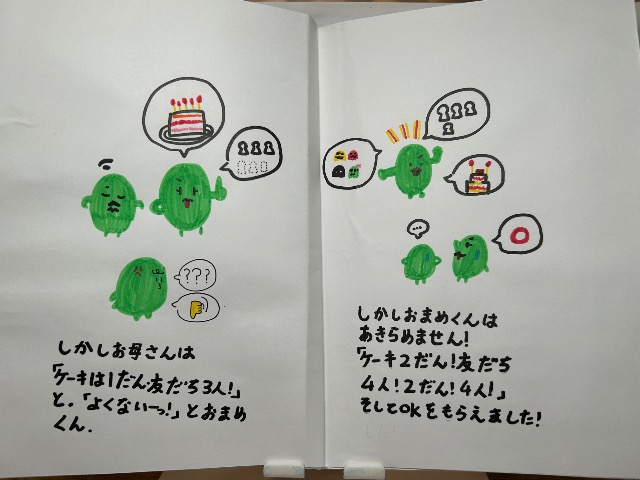 ???
しかしお母さんは
「ケーキは1だん・友だち3人!」
と。「よくないーっ!」とおまめ
くん.
しかしおまめくんは
あきらめません!
「ケーキ2だん!友だち
4人!2だん!4人!」
そしてOKをもらえました!